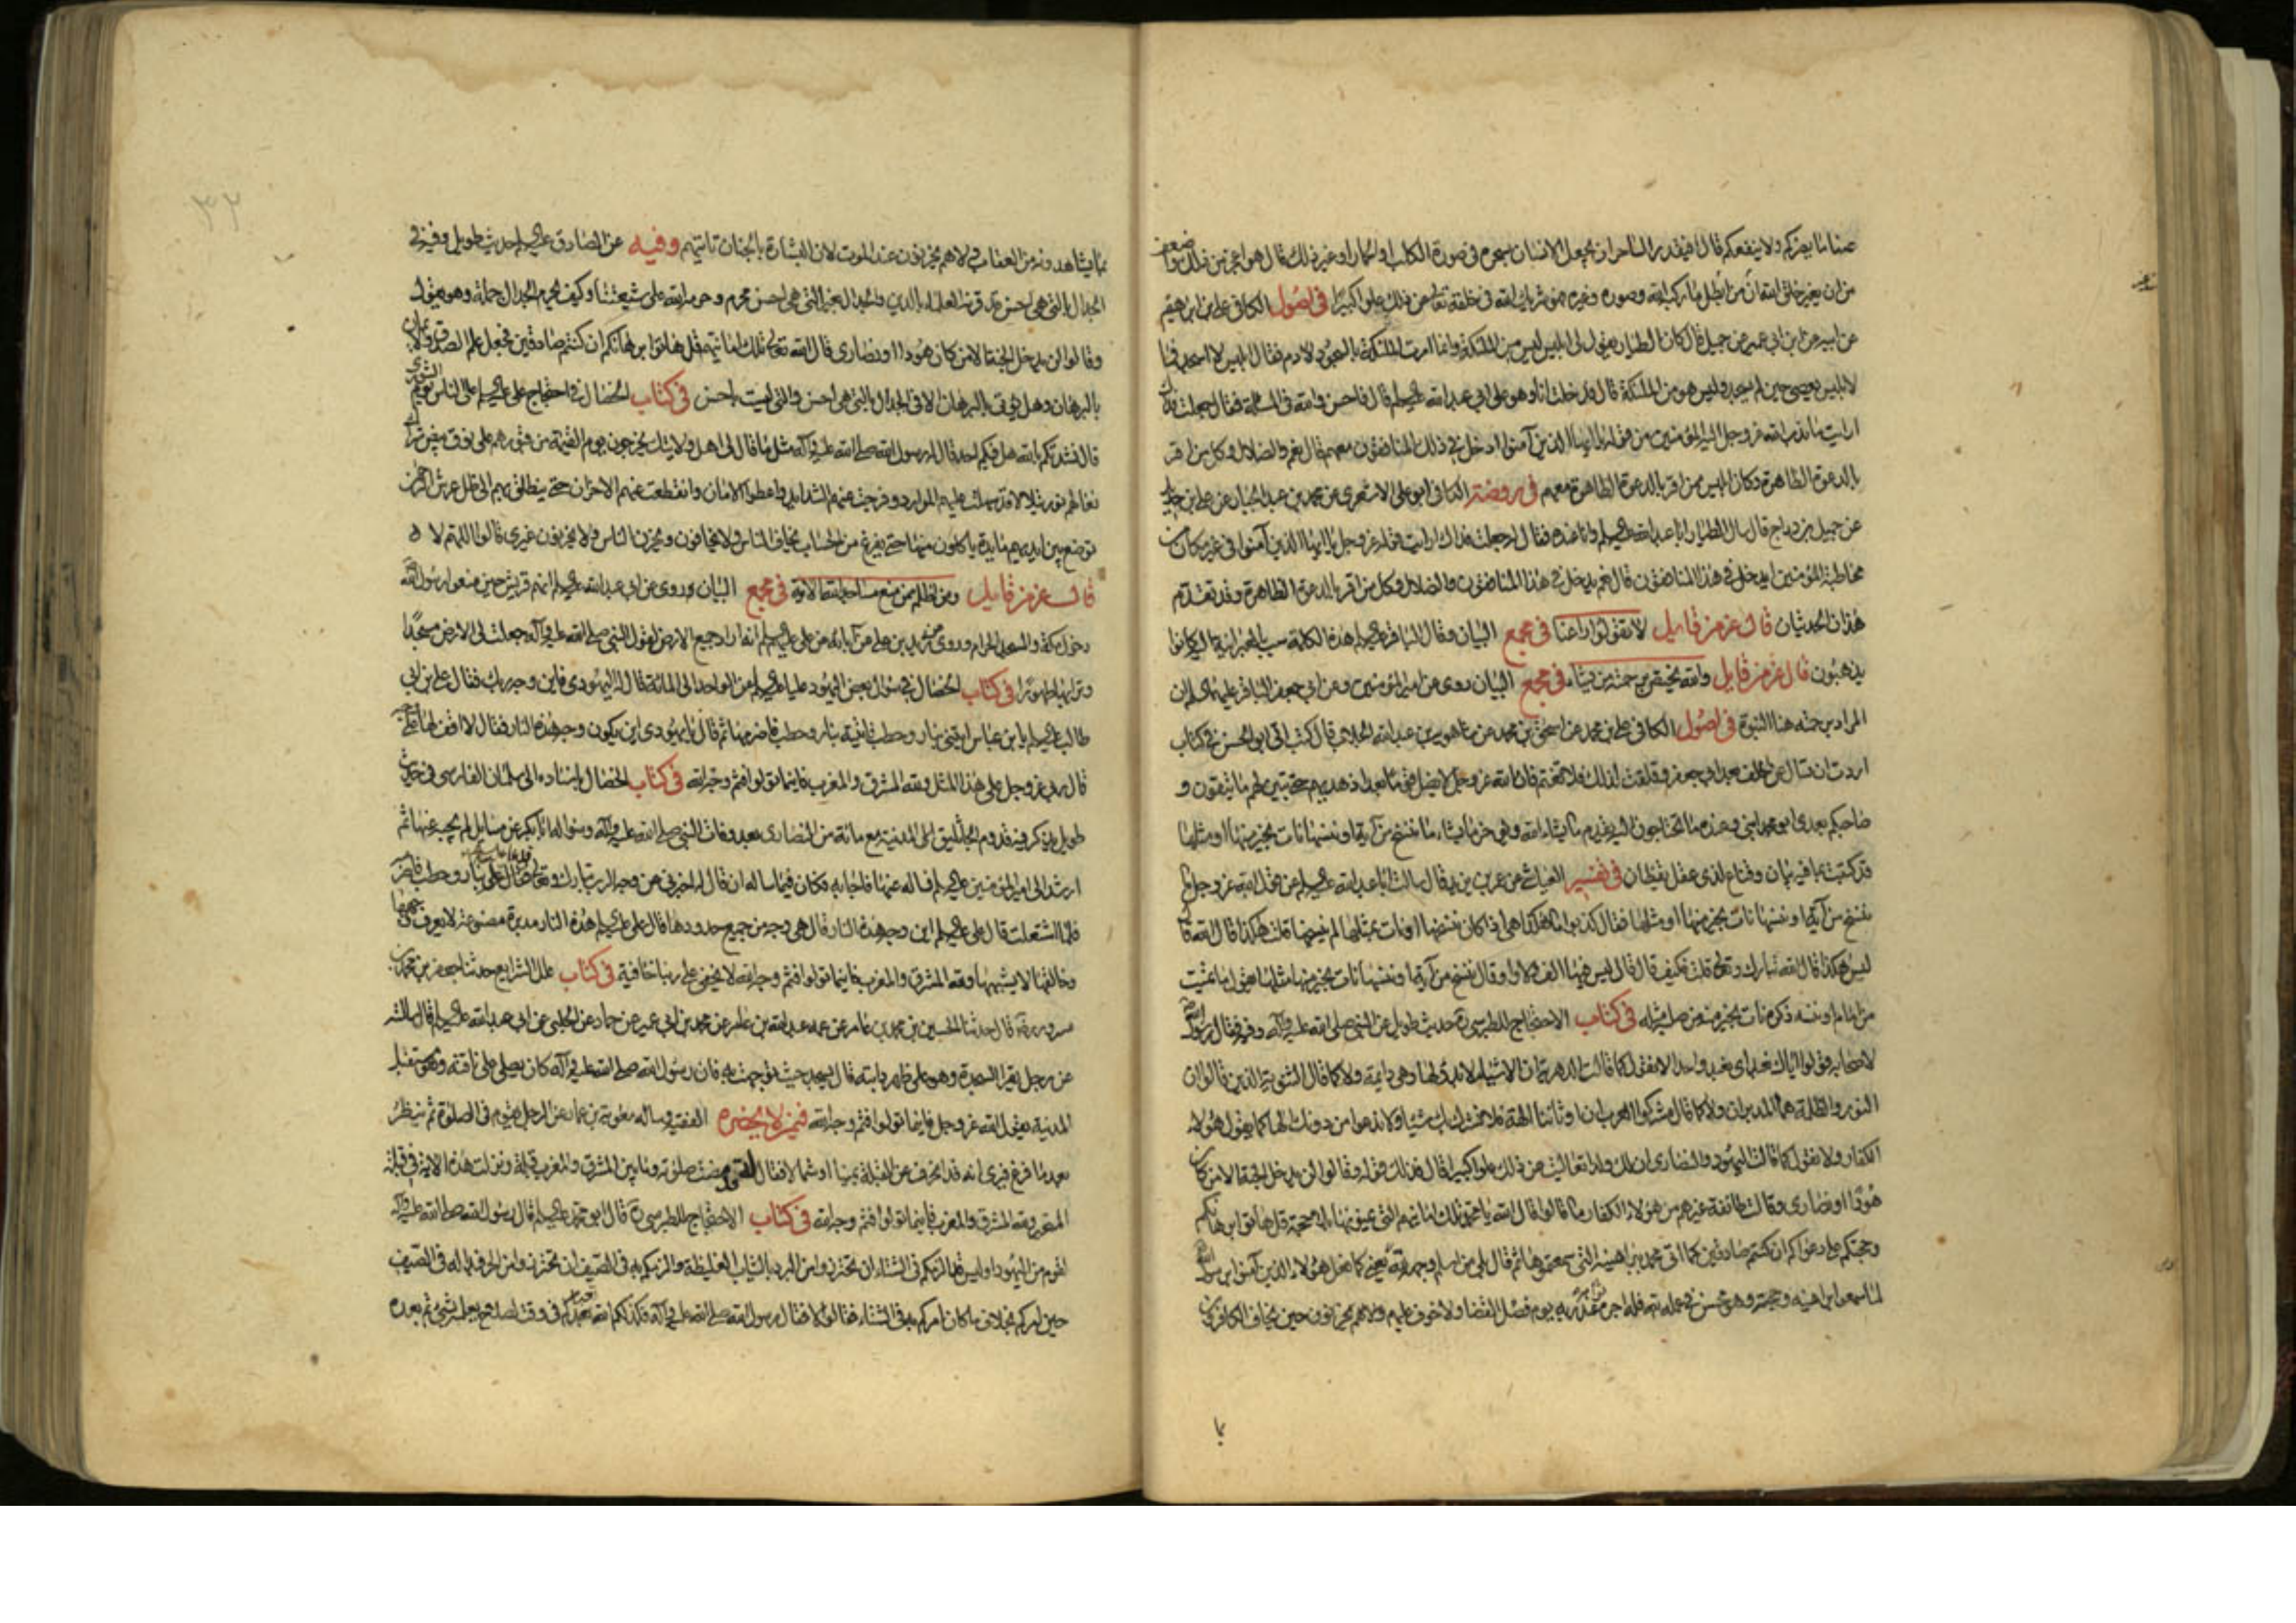 من ان يغير خلق الله ان من ابطل ما ركبه الله وصوره وغيره فهو شريك الله في خلقه تعالى عن ذلك علوا كبيرا في اصول الكافي علي بن ابرهيم
عن ابيه عن ابن ابي عمير عن جميل قال كان الطيار يقول لي ابليس ليس من الملئكة وانما امرت الملئكة بالسجود لادم فقال ابليس لا اسجد فما
لابليس يعصي حين لم يسجد وليس هو من الملئكة قال فدخلت انا وهو على ابي عبد الله قال فاحسن والله في المسئلة فقال جعلت فداك
ارايت ما ندب الله عز وجل اليه المؤمنين من قوله يا ايها الذين آمنوا ادخل في ذلك المنافقون معهم قال نعم والضلال وكل من اقر
بالدعوة الظاهرة وكان ابليس ممن اقر بالدعوة الظاهرة معهم في روضة الكافي ابو علي الاشعري عن محمد بن عبد الجبار عن علي بن حديد
عن جميل بن دراج قال سال الطيار ابا عبد الله وانا عنده فقال له جعلت فداك ارايت قوله عز وجل يا ايها الذين آمنوا في غير مكان من
مخاطبة المؤمنين ايدخل في هذا المنافقون قال نعم يدخل في هذا المنافقون والضلال وكل من اقر بالدعوة الظاهرة وقد تقدم
هذان الحديثان قال عز من قايل لا تقولوا راعنا في مجمع البيان وقال الباقر هذه الكلمة سب بالعبرانية اليه كانوا
يذهبون قال عز من قايل والله يختص برحمته من يشاء في مجمع البيان روى عن امير المؤمنين وعن ابي جعفر الباقر ان
المراد برحمته هنا النبوة في اصول الكافي علي بن محمد عن اسحق بن محمد عن شاهويه بن عبد الله الجلاب قال كتب الي ابو الحسن في كتاب
اردت ان تسال عن الخلف بعد ابي جعفر وقلقت لذلك فلا تغتم فان الله عز وجل لا يضل قوما بعد اذ هديهم حتى يتبين لهم ما يتقون و
صاحبكم بعدي ابو محمد ابني وعنده ما تحتاجون اليه يقدم ما يشاء الله ويؤخر ما يشاء ما ننسخ من آية او ننسها نات بخير منها او مثلها
قد كتبت بما فيه بيان وقناع لذي عقل يقظان في تفسير العياشي عن عمر بن يزيد قال سالت ابا عبد الله عن قول الله عز وجل ما
ننسخ من آية او ننسها نات بخير منها او مثلها فقال كذبوا ما هكذا هي اذا كان ينسخها او يات بمثلها لم ينسخها قلت هكذا قال الله قال
ليس هكذا قال الله تبارك وتعالى قلت فكيف قال قال ليس فيها الف ولا واو قال ننسخ من آية او ننسها نات بخير منها مثلها يقول ما نميت
من امام او ننسه ذكره نات بخير منه من صلبه مثله في كتاب الاحتجاج للطبرسي حديث طويل عن النبي صلى الله عليه وآله وفيه فقال رسول الله
لاصحابه قولوا اياك نعبد اي نعبد واحدا لا نقول كما قالت الدهرية ان الاشياء لا بدو لها وهي دايمة ولا كما قال الثنوية الذين قالوا ان
النور والظلمة هما المدبران ولا كما قال مشركوا العرب ان اوثاننا الهة فلا نشرك بك شيئا ولا ندعو من دونك الها كما يقول هؤلاء
الكفار ولا نقول كما قالت اليهود والنصارى ان لك ولدا تعاليت عن ذلك علوا كبيرا قال فذلك قوله وقالوا لن يدخل الجنة الا من كان
هودا او نصارى وقالت طائفة غيرهم من هؤلاء الكفار ما قالوا قال الله يا محمد تلك امانيهم التي يتمنونها بلا حجة قل هاتوا برهانكم
وحجتكم على دعواكم ان كنتم صادقين كما اتى محمد ببراهينه التي سمعتموها ثم قال بلى من اسلم وجهه لله يعني كما فعل هؤلاء الذين آمنوا برسول الله
لما سمعوا براهينه وحججه وهو محسن في عمله لله فله اجره عند ربه يوم فصل القضا ولا خوف عليهم ولا هم يحزنون حين يخاف الكافرون
مما يشاهدونه من العقاب ولا هم يحزنون عند الموت لان البشارة بالجنان تاتيهم وفيه عن الصادق حديث طويل وفيه
الجدال بالتي هي احسن قد قرنه العلماء بالدين والجدال بغير التي هي احسن محرم وحرمه الله على شيعتنا وكيف يحرم الجدال جملة وهو يقول
وقالوا لن يدخل الجنة الا من كان هودا او نصارى قال الله تعالى تلك امانيهم قل هاتوا برهانكم ان كنتم صادقين فجعل علم الصدق والايمان
بالبرهان وهل يؤتى بالبرهان الا في الجدال بالتي هي احسن والتي ليست باحسن في كتاب الخصال في احتجاج علي على الناس يوم الشورى
قال نشدتكم بالله هل فيكم احد قال له رسول الله صلى الله عليه وآله مثل ما قال لي اهل ولايتك يخرجون يوم القيمة من قبورهم على نوق بيض شراك
نعالهم نور يتلالا قد سهلت عليهم الموارد وفرجت عنهم الشدايد واعطوا الامان وانقطعت عنهم الاحزان حتى ينطلق بهم الى ظل عرش الرحمن
توضع بين ايديهم مايدة ياكلون منها حتى يفرغ من الحساب يخاف الناس ولا يخافون ويحزن الناس ولا يحزنون غيري قالوا اللهم لا
قال عز من قايل ومن اظلم ممن منع مساجد الله الاية في مجمع البيان وروى عن ابي عبد الله انهم قريش حين منعوا رسول الله
دخول مكة والمسجد الحرام وروى عن زيد بن علي عن آبائه عن علي انه اراد جميع الارض لقول النبي صلى الله عليه وآله جعلت لي الارض مسجدا
وترابها طهورا في كتاب الخصال في سؤال بعض اليهود عليا عن الواحد الى المائة قال له اليهودي فاين وجه ربك فقال علي بن ابي
طالب يا بن عباس ايتني بنار وحطب فاتيته بنار وحطب فاضرمها ثم قال يا يهودي اين يكون وجه هذه النار فقال لا اقف لها على وجه
قال ربي عز وجل على هذا المثل ولله المشرق والمغرب فاينما تولوا فثم وجه الله في كتاب الخصال باسناده الى سلمان الفارسي في حديث
طويل يذكر فيه قدوم الجاثليق الى المدينة مع مائة من النصارى بعد وفات النبي صلى الله عليه وآله وسؤاله ابا بكر عن مسايل لم يجبه عنها ثم
ارشد الى امير المؤمنين فساله عنها فاجابه وكان فيما ساله ان قال له اخبرني عن وجه الرب تبارك وتعالى فدعا علي بنار وحطب فاضرمه
فلما اشتعلت قال علي اين وجه هذه النار قال هي وجه من جميع حدودها قال علي هذه النار مدبرة مصنوعة لا يعرف وجهها
وخالقها لا يشبهها ولله المشرق والمغرب فاينما تولوا فثم وجه الله لا يخفى على ربنا خافية في كتاب علل الشرايع حدثنا جعفر بن محمد بن
مسرور قال حدثنا الحسين بن محمد بن عامر عن عمه عبد الله بن عامر عن محمد بن ابي عمير عن حماد عن الحلبي عن ابي عبد الله قال سالته
عن رجل يقرا السجدة وهو على ظهر دابته قال يسجد حيث توجهت به فان رسول الله صلى الله عليه وآله كان يصلي على ناقته وهو مستقبل
المدينة يقول الله عز وجل فاينما تولوا فثم وجه الله في من لا يحضره الفقيه وساله معوية بن عمار عن الرجل يقوم في الصلوة ثم ينظر
بعد ما فرغ فيرى انه قد انحرف عن القبلة يمينا او شمالا فقال له قد مضت صلوته وما بين المشرق والمغرب قبلة ونزلت هذه الاية في قبلة
المتحير ولله المشرق والمغرب فاينما تولوا فثم وجه الله في كتاب الاحتجاج للطبرسي قال ابو محمد قال رسول الله صلى الله عليه وآله
لقوم من اليهود اوليس قد الزمكم في الشتاء ان تحترزوا من البرد بالثياب الغليظة والزمكم به في الصيف ان تحترزوا من الحر فبدا له في الصيف
حين امركم بخلاف ما كان امركم به في الشتاء فقالوا لا فقال رسول الله صلى الله عليه وآله فكذلكم الله تعبدكم في وقت لصلاح يعلمه بشيء ثم بعده